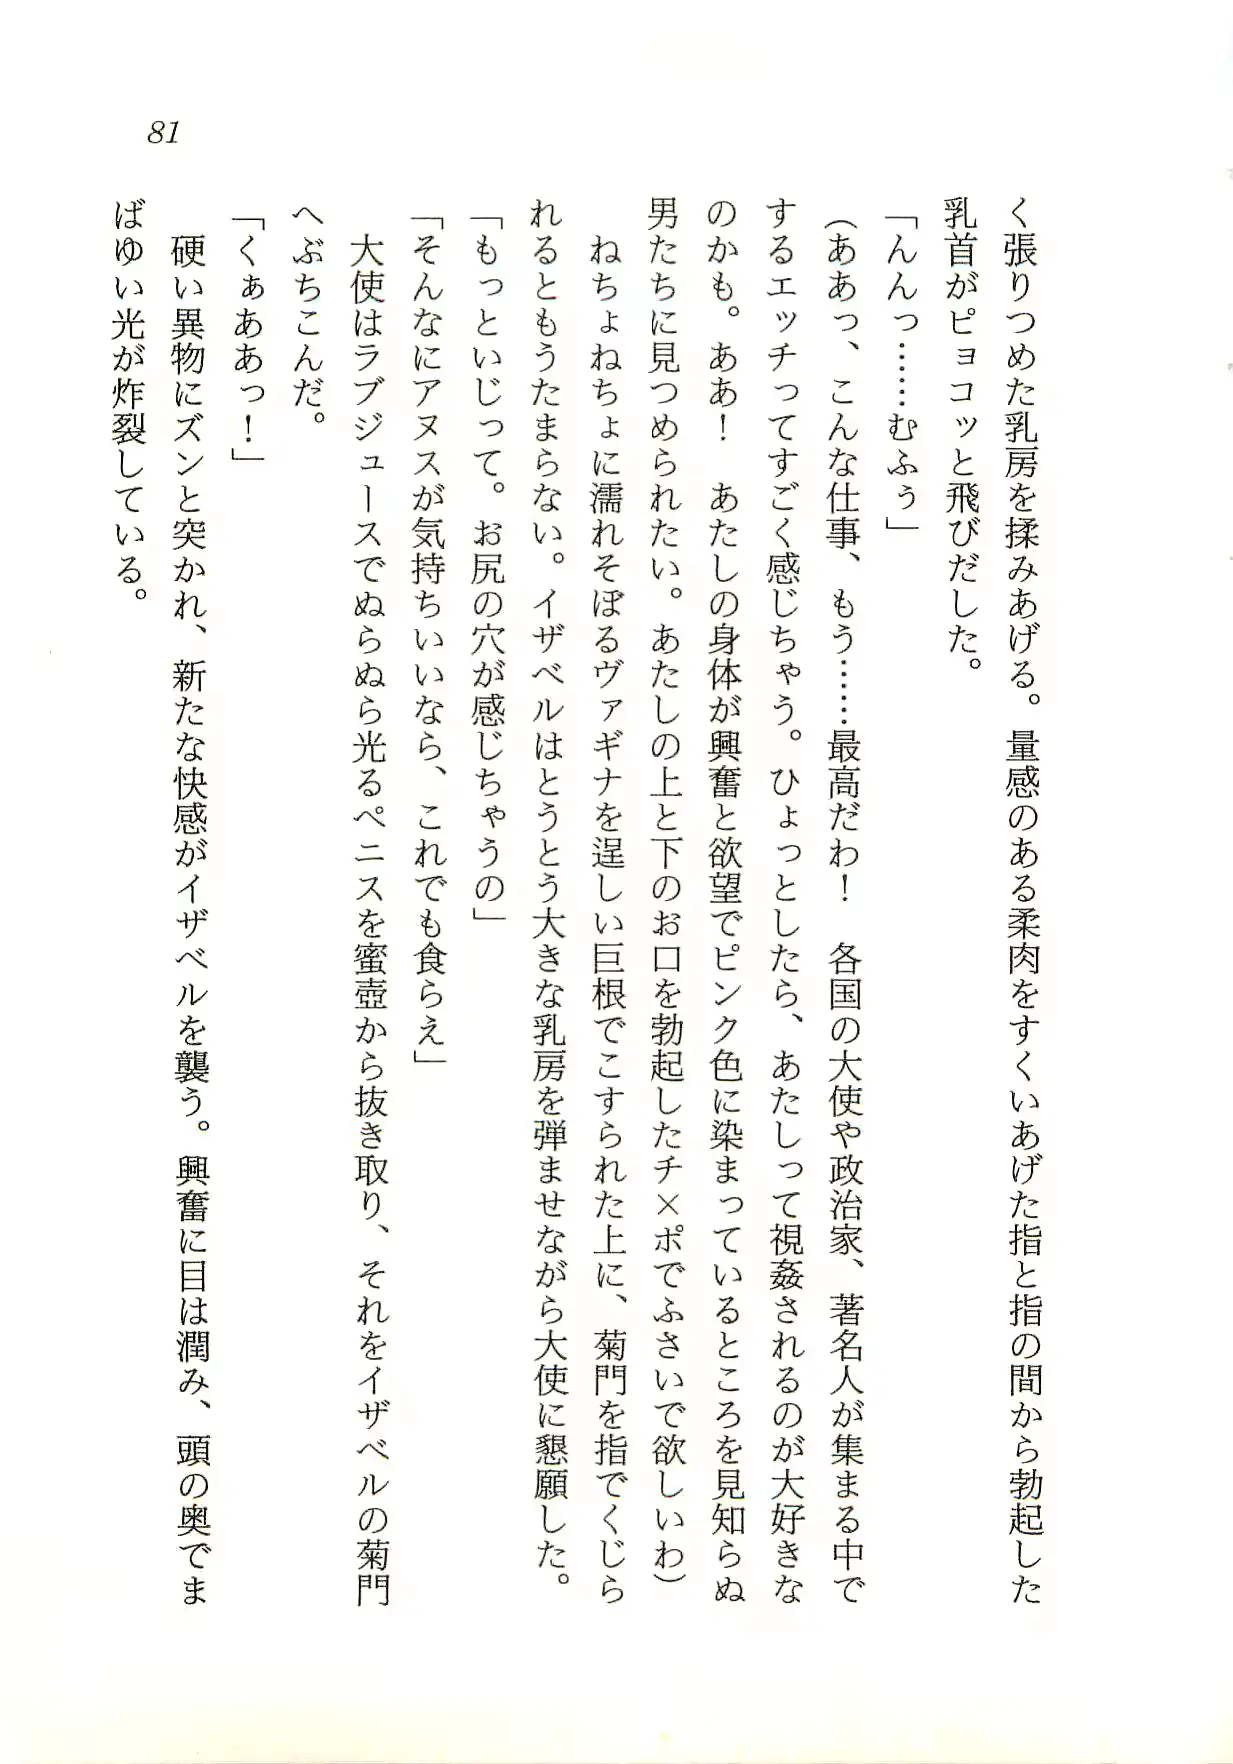 81
く張りつめた乳房を揉みあげる。量感のある柔肉をすくいあげた指と指の間から勃起した
乳首がピョコッと飛びだした。
「んんっ……むふぅ」
(ああっ、こんな仕事、もう……最高だわ！　各国の大使や政治家、著名人が集まる中で
するエッチってすごく感じちゃう。ひょっとしたら、あたしって視姦されるのが大好きな
のかも。ああ！　あたしの身体が興奮と欲望でピンク色に染まっているところを見知らぬ
男たちに見つめられたい。あたしの上と下のお口を勃起したチ×ポでふさいで欲しいわ)
　ねちょねちょに濡れそぼるヴァギナを逞しい巨根でこすられた上に、菊門を指でくじら
れるともうたまらない。イザベルはとうとう大きな乳房を弾ませながら大使に懇願した。
「もっといじって。お尻の穴が感じちゃうの」
「そんなにアヌスが気持ちいいなら、これでも食らえ」
　大使はラブジュースでぬらぬら光るペニスを蜜壺から抜き取り、それをイザベルの菊門
へぶちこんだ。
「くぁああっ！」
　硬い異物にズンと突かれ、新たな快感がイザベルを襲う。興奮に目は潤み、頭の奥でま
ばゆい光が炸裂している。